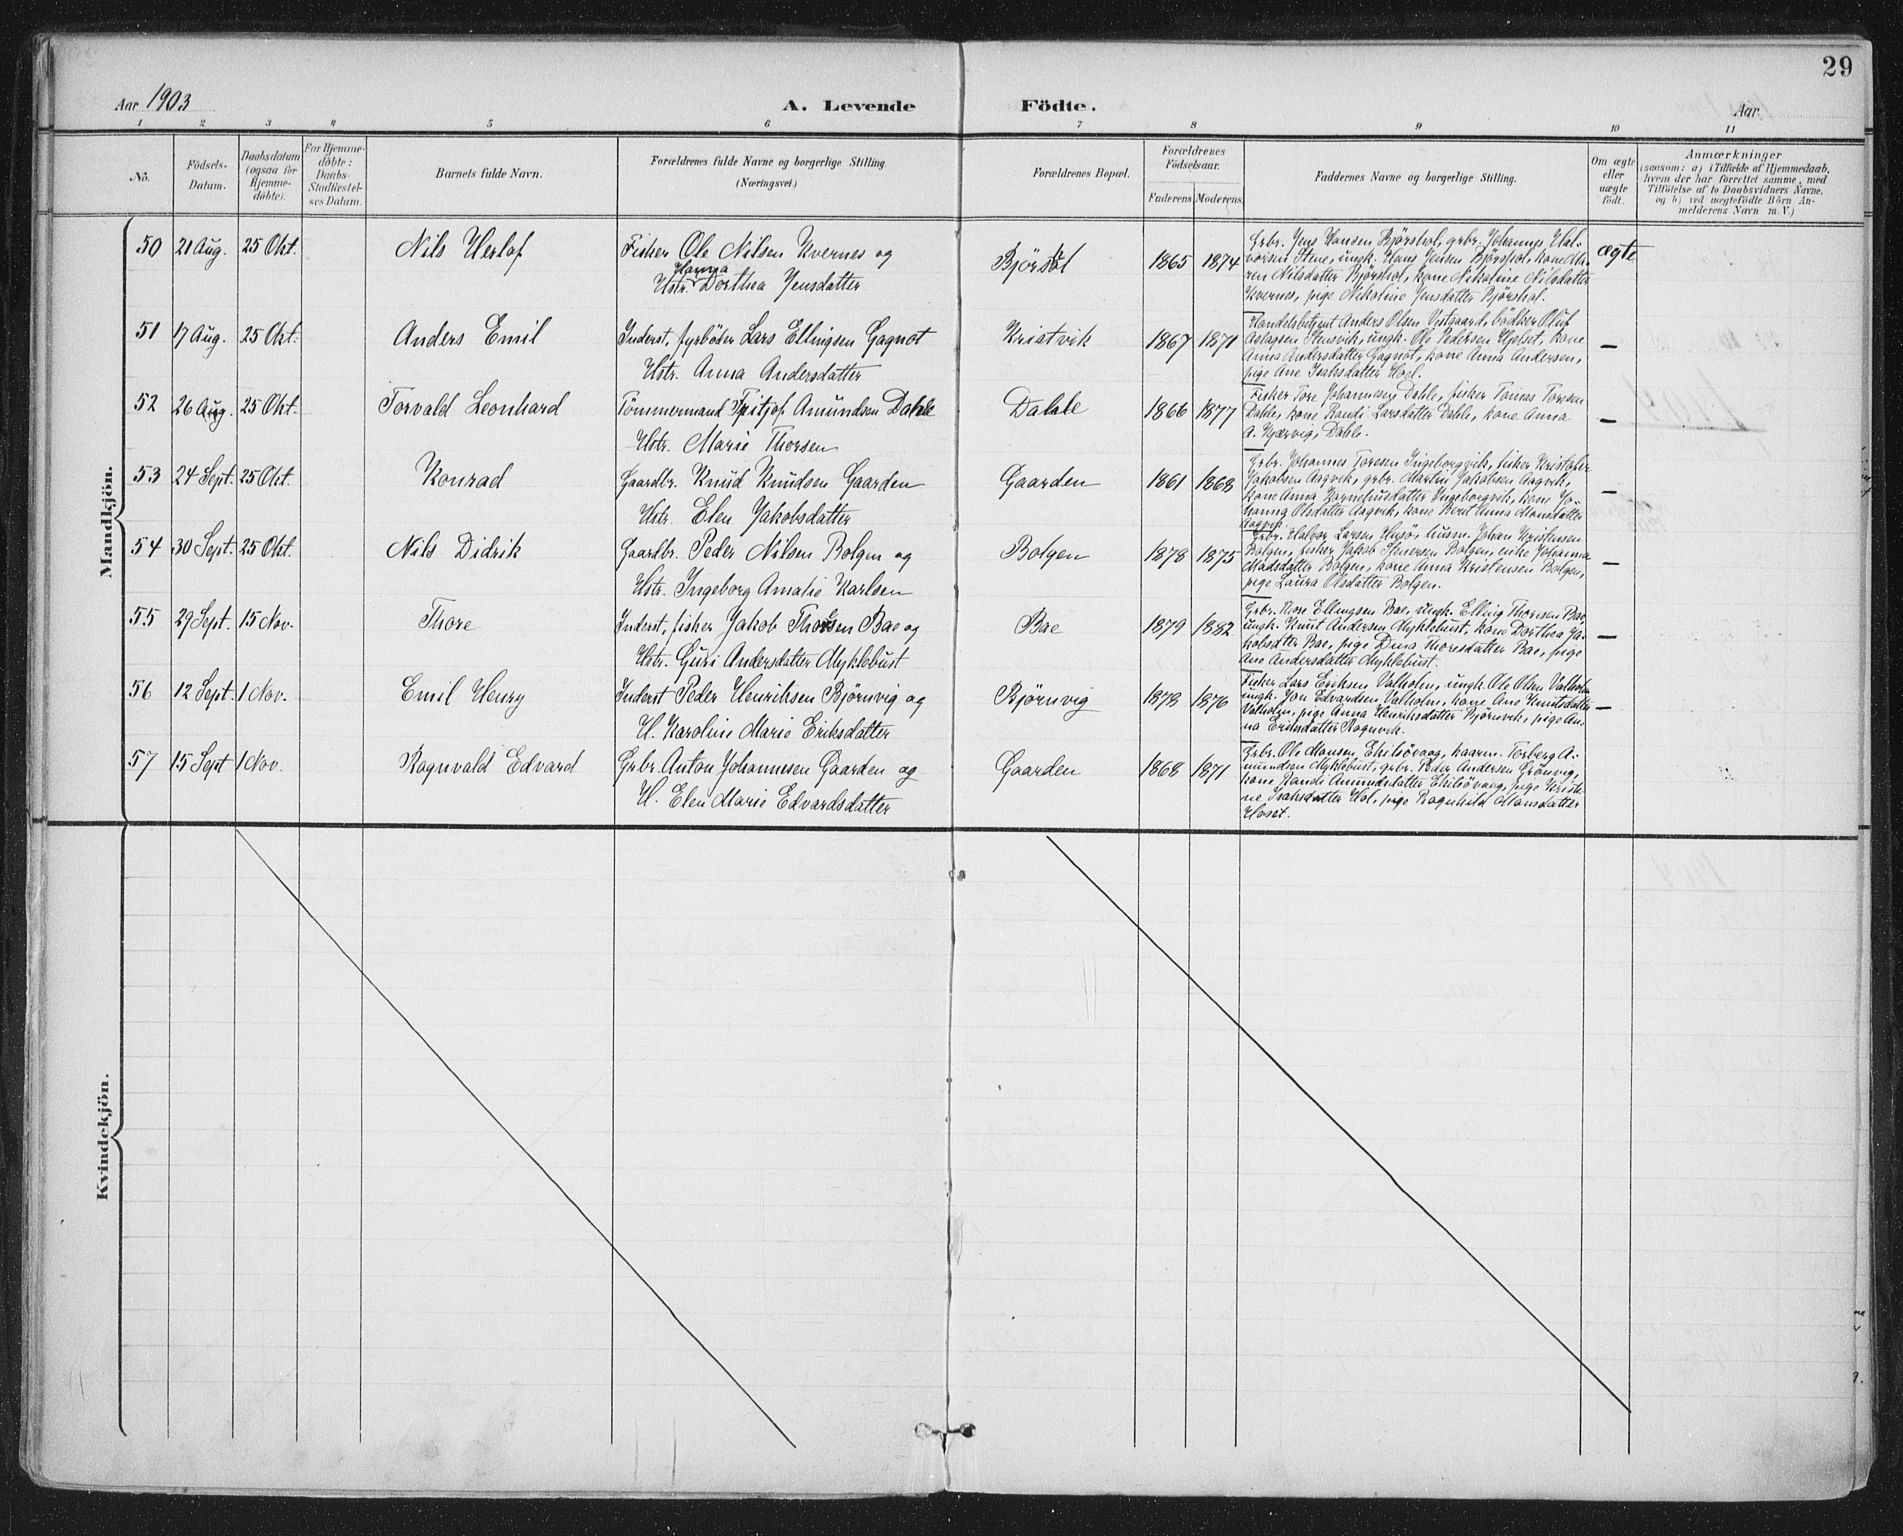 29
Aar 1903
A. Levende Födte.
Aar
1 2 3 4 5 6 7 8 9 10 11
No.
Födsels-Datum.
Daabsdatum (ogsaa for Hjemme-döbte).
For Hjemme-döbte: Daabs-Stadfæstel-ses Datum.
Barnets fulde Navn.
Forældrenes fulde Navne og borgerlige Stilling. (Næringsvei.)
Forældrenes Bopæl.
Forældrenes Födselsaar.
Faderens Moderens
Faddernes Navne og borgerlige Stilling.
Om ægte eller uægte født.
Anmærkninger
(saasom: a) i Tilfælde af Hjemmedaab, hvem der har forrettet samme, med Tilföielse af to Daabsvidners Navne, og b) ved uægtefödte Börn An-melderens Navn m. V.)
Mandkjön.
50 21 Aug. 25 Okt. Nils Herlof
Fisker Ole Nilsen Kvernes og
Hstr. Hanna Dorthea Jensdatter
Bjørshol 1865 1874
Grbr. Jens Hansen Bjørshol, grbr. Johannes Hal-
vorsen Stene, ungk. Hans Jensen Bjørshol, kone Ma-
ren Nilsdatter Bjørshol, kone Nikoline Nilsdatter
Kvernes, pige Nikoline Jensdatter Bjørshol.
ægte
51 17 Aug. 25 Okt. Anders Emil
Inderst, fyrbøder Lars Ellingsen Gagnat
Hstr. Anna Andersdatter
Kristvik 1867 1871
Handelsbetjent Anders Olsen Vestgaard, bødker Oluf
Aslagsen Stensvik, ungk. Ole Pedersen Hjelset, kone
Anna Andersdatter Gagnat, kone Anna Andersen,
pige Ane Isaksdatter Hoel.
—
52 26 Aug. 25 Okt. Torvald Leonhard
Tømmermand Fritjof Amundsen Dahle
Hstr. Marie Thorsen
Dahle 1866 1877
Fisker Tore Johannesen Dahle, fisker Tomas Toresen
Dahle, kone Randi Larsdatter Dahle, kone Anna
A. Kjærvig, Dahle.
—
53 24 Sept. 25 Okt. Konrad
Gaardbr. Knud Knudsen Gaarden
Hstr. Elen Jakobsdatter
Gaarden 1861 1868
Grbr. Johannes Toresen Ingeborgvik, fisker Kristofer
Jakobsen Aagvik, grbr. Martin Jakobsen Aagvik,
kone Anna Korneliusdatter Ingeborgvik, kone Jo-
hanna Olsdatter Aagvik, kone Berit Anna Monsdatter
Aagvik.
—
54 30 Sept. 25 Okt. Nils Didrik
Gaardbr. Peder Nilsen Bolgen og
Hstr. Ingeborg Amalie Karlsen
Bolgen 1878 1875
Grbr. Halvor Larsen Husø, husm. Johan Kristensen
Bolgen, fisker Jakob Iversen Bolgen, enke Johanna
Madsdatter Bolgen, kone Anna Kristensen Bolgen,
pige Laura Olsdatter Bolgen.
—
55 29 Sept. 15 Nov. Thore
Inderst, fisker Jakob Thoresen Bae og
Hstr. Guri Andersdatter Myklebust
Bae 1879 1882
Grbr. Tore Ellingsen Bae, ungk. Elling Thoresen Bae,
ungk. Knut Andersen Myklebust, kone Dorthea Ja-
kobsdatter Bae, pige Dina Thoresdatter Bae, pige
Ane Andersdatter Myklebust.
—
56 12 Sept. 1 Nov. Emil Henry
Inderst Peder Henriksen Bjørnvig og
H. Karoline Marie Eriksdatter
Bjørnvig 1878 1876
Fisker Lars Eriksen Valholm, ungk. Ole Olsen Valholm,
ungk. Jon Edvardsen Valholm, kone Ane Knutsdatter
Valholm, pige Anna Henriksdatter Bjørnvik, pige An-
na Eriksdatter Ragnvik.
—
57 15 Sept 1 Nov. Ragnvald Edvard
Grbr. Anton Johannesen Gaarden og
H. Elen Marie Edvardsdatter
Gaarden 1868 1871
Grbr. Ole Monsen Ekilsövaag, kaarm. Torberg A-
mundsen Myklebust, grbr. Peder Andersen Grönvig,
kone Randi Amundsdatter Ekilsövaag, pige Kristi-
ne Isaksdatter Hol, pige Ragnhild Monsdatter
Hoset.
Kvindekjön.